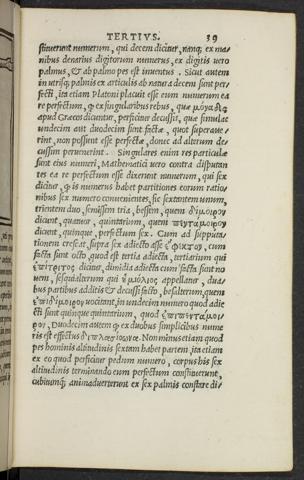 TERTIVS. 39
stituerunt numerum, qui decem dicitur, nanq; ex ma
nibus denarius digitorum numerus, ex digitis uero
palmus, & ab palmo pes est inuentus. Sicut autem
in utrisq; palmis ex articulis ab natura decem sunt per
fecti, ita etiam Platoni placuit esse eum numerum ea
re perfectum, q ex singularibus rebus, quæ μονάδες
apud Græcos dicuntur, perficitur decussis, quæ simulac
undecim aut duodecim sunt factæ, quot superaue
rint, non possunt esse perfectæ, donec ad alterum de-
cussim peruenerint. Singulares enim res particulæ
sunt eius numeri, Mathematici uero contra disputan
tes ea re perfectum esse dixerunt numerum, qui sex
dicitur, q is numerus habet partitiones eorum ratio
nibus sex numero conuenientes, sic sextantem unum,
trientem duo, semissem tria, bessem, quem δίμοιρον
dicunt, quatuor, quintarium, quem πεντάμοιρον
dicunt, quinque, perfectum sex. Cum ad supputa-
tionem crescat, supra sex adiecto asse ἔφεκτον, cum
facta sunt octo, quod est tertia adiecta, tertiarium qui
ἐπίτριτος dicitur, dimidia adiecta cum facta sunt no
uem, sesquialterum qui ἡμιόλιος appellatur, dua/
bus partibus additis & decussi facto, besalterum, quem
ἐπιδίμοιρον uocitant, in undecim numero quod adie
cti sunt quinque quintarium, quod ἐπιπεντάμοι
ρον, Duodecim autem q ex duobus simplicibus nume
ris est effectus διπλασίονα. Non minus etiam quod
pes hominis altitudinis sextam habet partem, ita etiam
ex eo quod perficitur pedum numero, corpus his sex
altitudinis terminando eum perfectum constituerunt,
cubitumq; animaduerterunt ex sex palmis constare di/